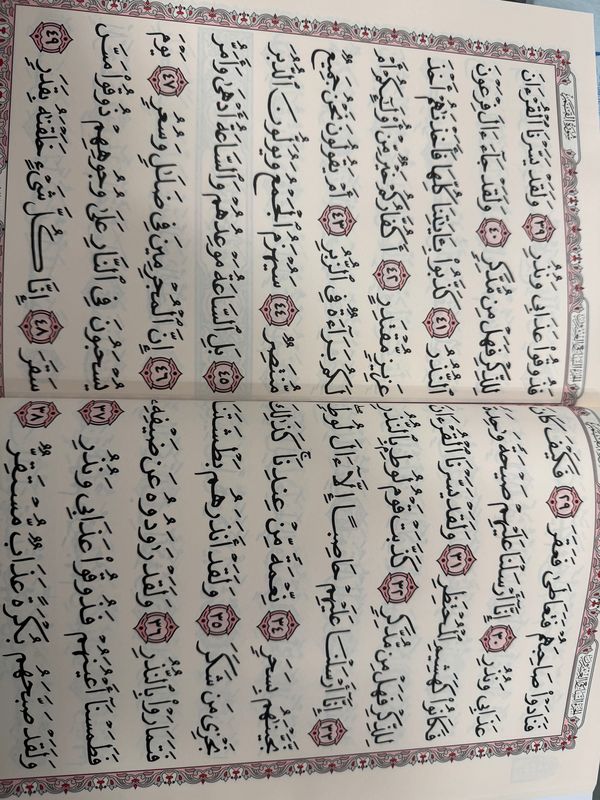 فَنَادَوْا۟ صَاحِبَهُمْ فَتَعَاطَىٰ فَعَقَرَ ٢٩ فَكَيْفَ كَانَ
عَذَابِى وَنُذُرِ ٣٠ إِنَّآ أَرْسَلْنَا عَلَيْهِمْ صَيْحَةً وَٰحِدَةً
فَكَانُوا۟ كَهَشِيمِ ٱلْمُحْتَظِرِ ٣١ وَلَقَدْ يَسَّرْنَا ٱلْقُرْءَانَ
لِلذِّكْرِ فَهَلْ مِن مُّدَّكِرٍ ٣٢ كَذَّبَتْ قَوْمُ لُوطٍۭ بِٱلنُّذُرِ
٣٣ إِنَّآ أَرْسَلْنَا عَلَيْهِمْ حَاصِبًا إِلَّآ ءَالَ لُوطٍۖ
نَّجَّيْنَٰهُم بِسَحَرٍ ٣٤ نِّعْمَةً مِّنْ عِندِنَاۚ كَذَٰلِكَ
نَجْزِى مَن شَكَرَ ٣٥ وَلَقَدْ أَنذَرَهُم بَطْشَتَنَا
فَتَمَارَوْا۟ بِٱلنُّذُرِ ٣٦ وَلَقَدْ رَٰوَدُوهُ عَن ضَيْفِهِۦ
فَطَمَسْنَآ أَعْيُنَهُمْ فَذُوقُوا۟ عَذَابِى وَنُذُرِ ٣٧
وَلَقَدْ صَبَّحَهُم بُكْرَةً عَذَابٌ مُّسْتَقِرٌّ ٣٨
سُورَةُ القَمَرِ
فَذُوقُوا۟ عَذَابِى وَنُذُرِ ٣٩ وَلَقَدْ يَسَّرْنَا ٱلْقُرْءَانَ
لِلذِّكْرِ فَهَلْ مِن مُّدَّكِرٍ ٤٠ وَلَقَدْ جَآءَ ءَالَ فِرْعَوْنَ
ٱلنُّذُرُ ٤١ كَذَّبُوا۟ بِـَٔايَٰتِنَا كُلِّهَا فَأَخَذْنَٰهُمْ أَخْذَ
عَزِيزٍ مُّقْتَدِرٍ ٤٢ أَكُفَّارُكُمْ خَيْرٌ مِّنْ أُو۟لَٰٓئِكُمْ أَمْ
لَكُم بَرَآءَةٌ فِى ٱلزُّبُرِ ٤٣ أَمْ يَقُولُونَ نَحْنُ جَمِيعٌ
مُّنتَصِرٌ ٤٤ سَيُهْزَمُ ٱلْجَمْعُ وَيُوَلُّونَ ٱلدُّبُرَ
٤٥ بَلِ ٱلسَّاعَةُ مَوْعِدُهُمْ وَٱلسَّاعَةُ أَدْهَىٰ وَأَمَرُّ
٤٦ إِنَّ ٱلْمُجْرِمِينَ فِى ضَلَٰلٍ وَسُعُرٍ ٤٧ يَوْمَ
يُسْحَبُونَ فِى ٱلنَّارِ عَلَىٰ وُجُوهِهِمْ ذُوقُوا۟ مَسَّ
سَقَرَ ٤٨ إِنَّا كُلَّ شَىْءٍ خَلَقْنَٰهُ بِقَدَرٍ ٤٩